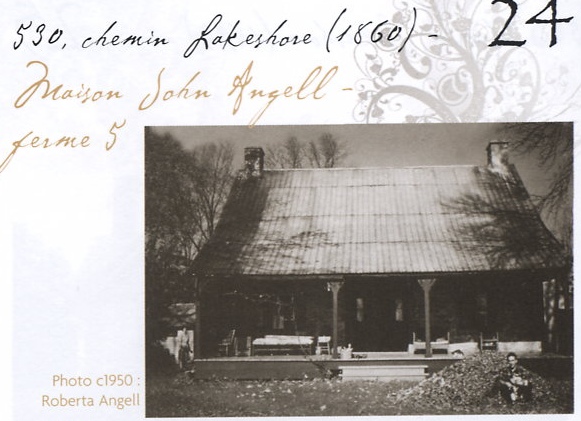 530, chemin Lakeshore (1860) -
24
Maison John Angell -
ferme 5
Photo c1950 :
Roberta Angell